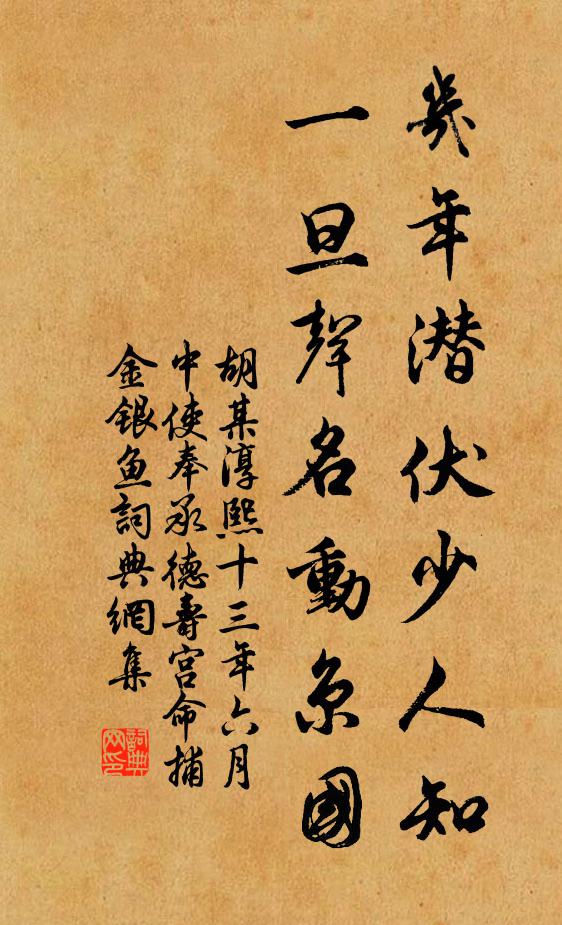 幾年潛伏少人知
一旦聲名動京國
胡某淳熙十三年六月
中使奉承德壽宮命捕
金銀魚詞典網集
詞典
网印